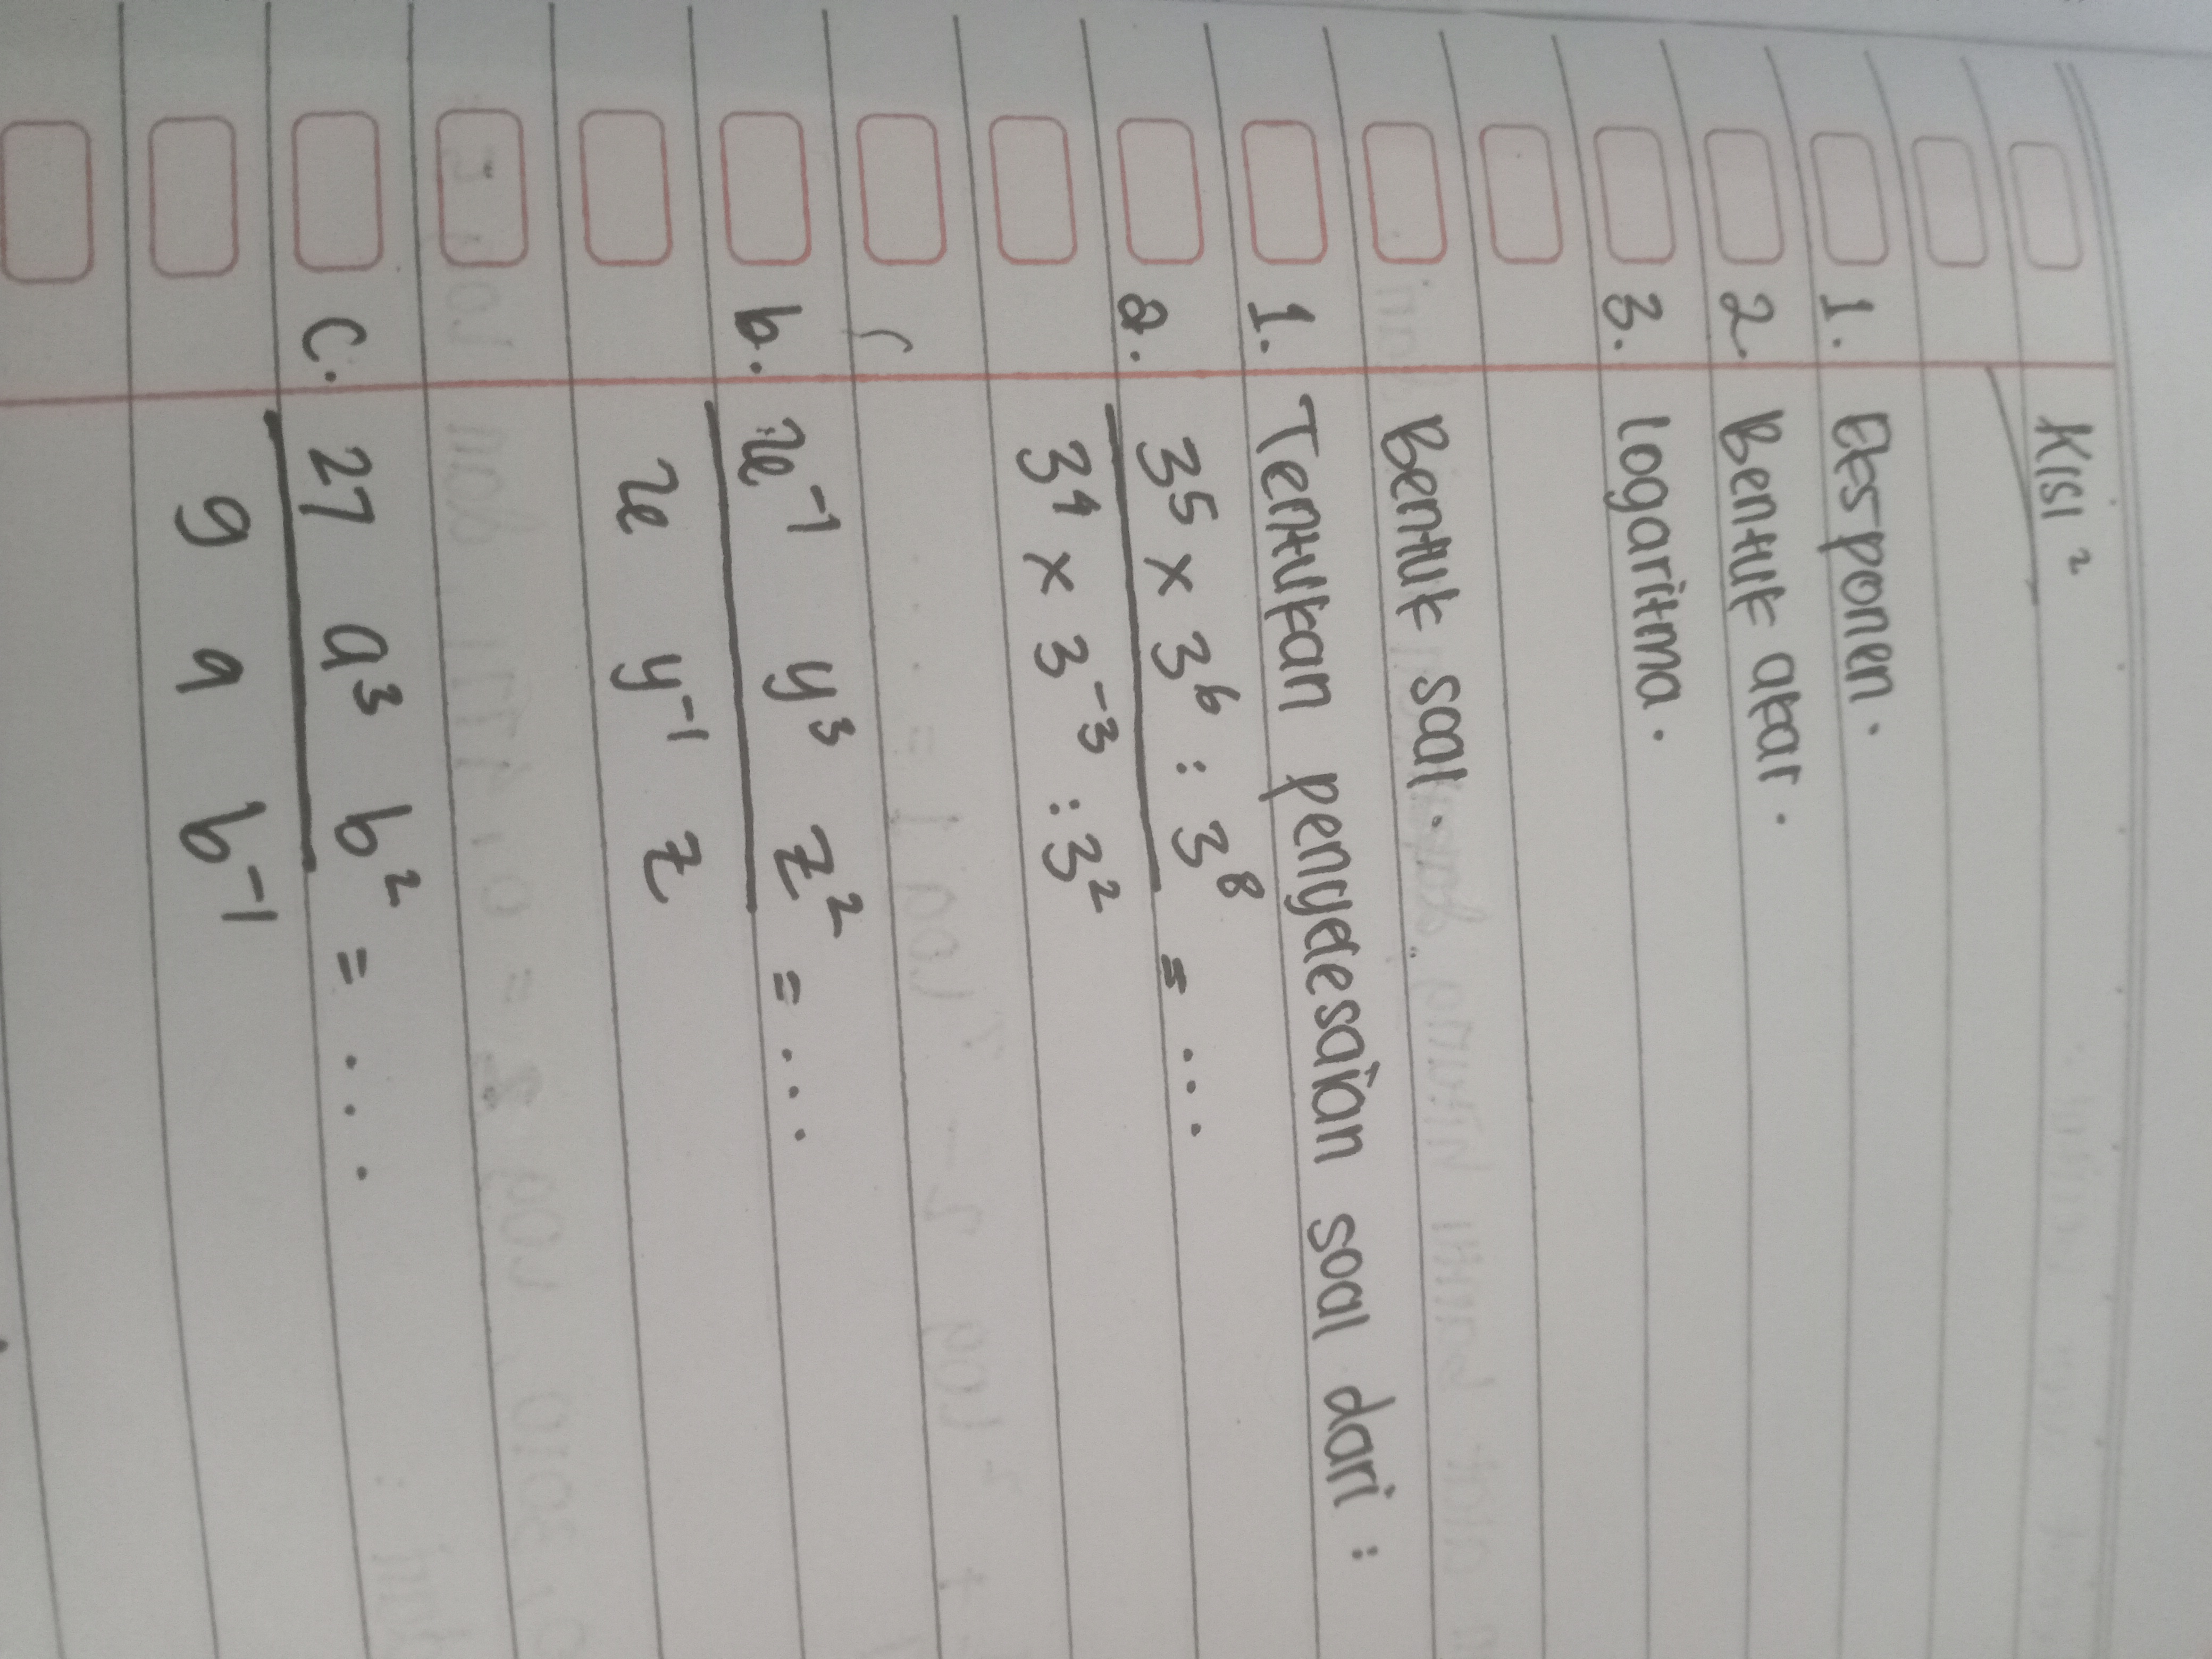 Kisi²
1. Eksponen.
2. Bentuk akar.
3. logaritma.
Bentuk soal.
1. Tentukan penyelesaian soal dari :
a. 3⁵ × 3⁶ : 3⁸ = ...
3⁴ × 3⁻³ : 3²
b. x⁻¹ y³ z² = ...
x y⁻¹ z
c. 27 a³ b² = ...
9 a b⁻¹